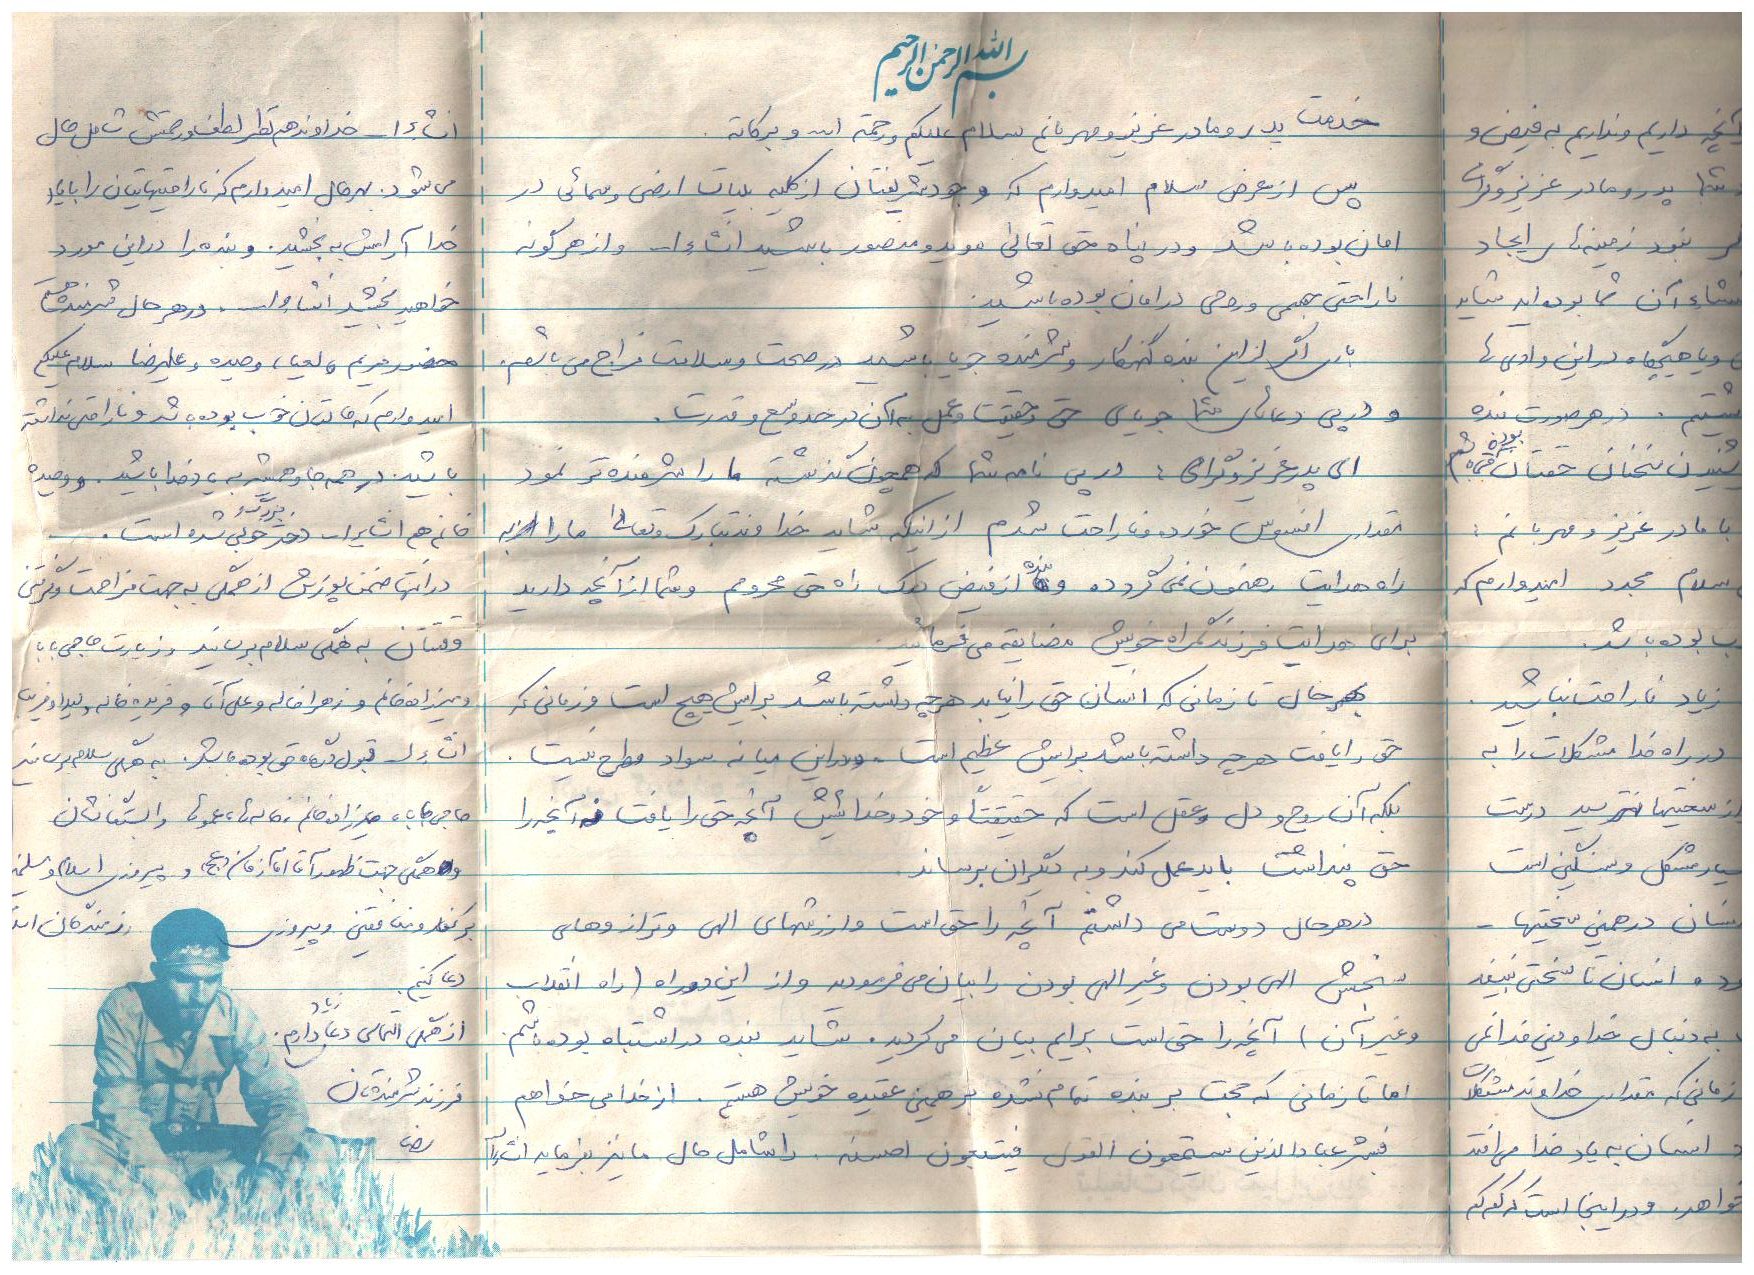 بسم الله الرحمن الرحیم
خدمت پدر و مادر عزیز و مهربانم سلام علیکم و رحمة الله و برکاته .
پس از عرض سلام امیدوارم که وجود شریفتان از کلیه بلیات ارضی و سمائی در
امان بوده باشد و در پناه حق تعالی موید و منصور باشید انشاءا... و از هرگونه
ناراحتی جسمی و روحی در امان بوده باشید.
باری اگر از این بنده گنهکار و شرمنده جویا باشید در صحت و سلامت مزاج می باشم.
و در پی دعاهای شما جویای حق و حقیقت و عمل به آن در حد وسع و قدرت .
ای پدر عزیز و گرامی ؛ در پی نامه شما که همچون گذشته ما را شرمنده تر نمود
مقداری افسوس خورده و ناراحت شدم از اینکه شاید خداوند تبارک و تعالی ما را به
راه هدایت رهنمون نمی گرده و بنده از فیض درک راه حق محرومم و شما از آنچه دارید
برای هدایت فرزند گمراه خویش مضایقه می فرمائید.
بهرحال تا زمانی که انسان حق را نیابد هرچه داشته باشد برایش هیچ است و زمانی که
حق را یافت هرچه داشته باشد برایش عظیم است . و در این میانه سواد مطرح نیست .
بلکه آن روح و دل و عقل است که حقیقتاً و خود خدائیش آنچه حق را یافت نه آنچه را
حق پنداشت باید عمل کند و به دیگران برساند.
در هر حال دوست می داشتم آنچه را حق است و ارزشهای الهی و ترازوهای
سنجش الهی بودن و غیر الهی بودن را بیان می فرمودید و از این دو راه (راه انقلاب
و غیر آن) آنچه را حق است برایم بیان می کردید. شاید بنده در اشتباه بوده باشم
اما تا زمانی که حجت بر بنده تمام نشده بر همین عقیده خویش هستم . از خدا می خواهم
فبشر عباد الذین یستمعون القول فیتبعون احسنه . را شامل حال ما نیز بفرماید انشاءا...
انشاءا... خداوند هم نظر لطف و رحمتش شامل حال
می شود. بهرحال امیدوارم که ناراحتیهایتان را با یاد
خدا آرامش به بخشید. و بنده را در این مورد
خواهید بخشید انشاءا... در هر حال شرمنده هستم
حضور مریم و لعیا، وحیده و علیرضا سلام علیکم
امیدوارم که حالتان خوب بوده باشد و ناراحتی نداشته
باشید. در همه جا و همیشه به یاد خدا باشید. و وحیده
خانم هم انشاءا... دختر بزرگ و خوبی شده است .
در انتها ضمن پوزش از همگی به جهت مزاحمت و گرفتن
وقتتان به همگی سلام برسانید و زیارت حاجی بابا
و میرزاده خانم و زهرا خاله و علی آقا و فریده خاله
انشاءا... قبول درگاه حق بوده باشد. به همگی سلام برسانید
حاجی بابا، میرزاده خانم، خاله ها، عموها وابستگانشان
و همگی جهت ظهور آقا امام زمان (عج) و پیروزی اسلام و مسلمین
بر کفار و منافقین و پیروزی رزمندگان
دعا کنیم.
از همگی التماس دعا زیاد دارم.
فرزند شرمنده تان
رضا
آنچه داریم و نداریم به فیض و
شما پدر و مادر عزیز و گرامی
نبود زمینه های ایجاد
منشاء آن شما بوده اید شاید
و یا هیچگاه در این وادی ها
در هر صورت بنده
شنیدن سخنان حقتان بوده
با مادر عزیز و مهربانم :
سلام مجدد امیدوارم که
بوده باشد.
زیاد ناراحت نباشید .
در راه خدا مشکلات را به
از سختیها نترسید درست
مشکل و سنگین است
انسان در همین سختیها -
و انسان تا سختی نبیند
به دنبال خدا و دین خدا نمی
زمانی که مقداری خداوند مشکلات
انسان به یاد خدا می افتد
خواهد. و در اینجا است که کم کم